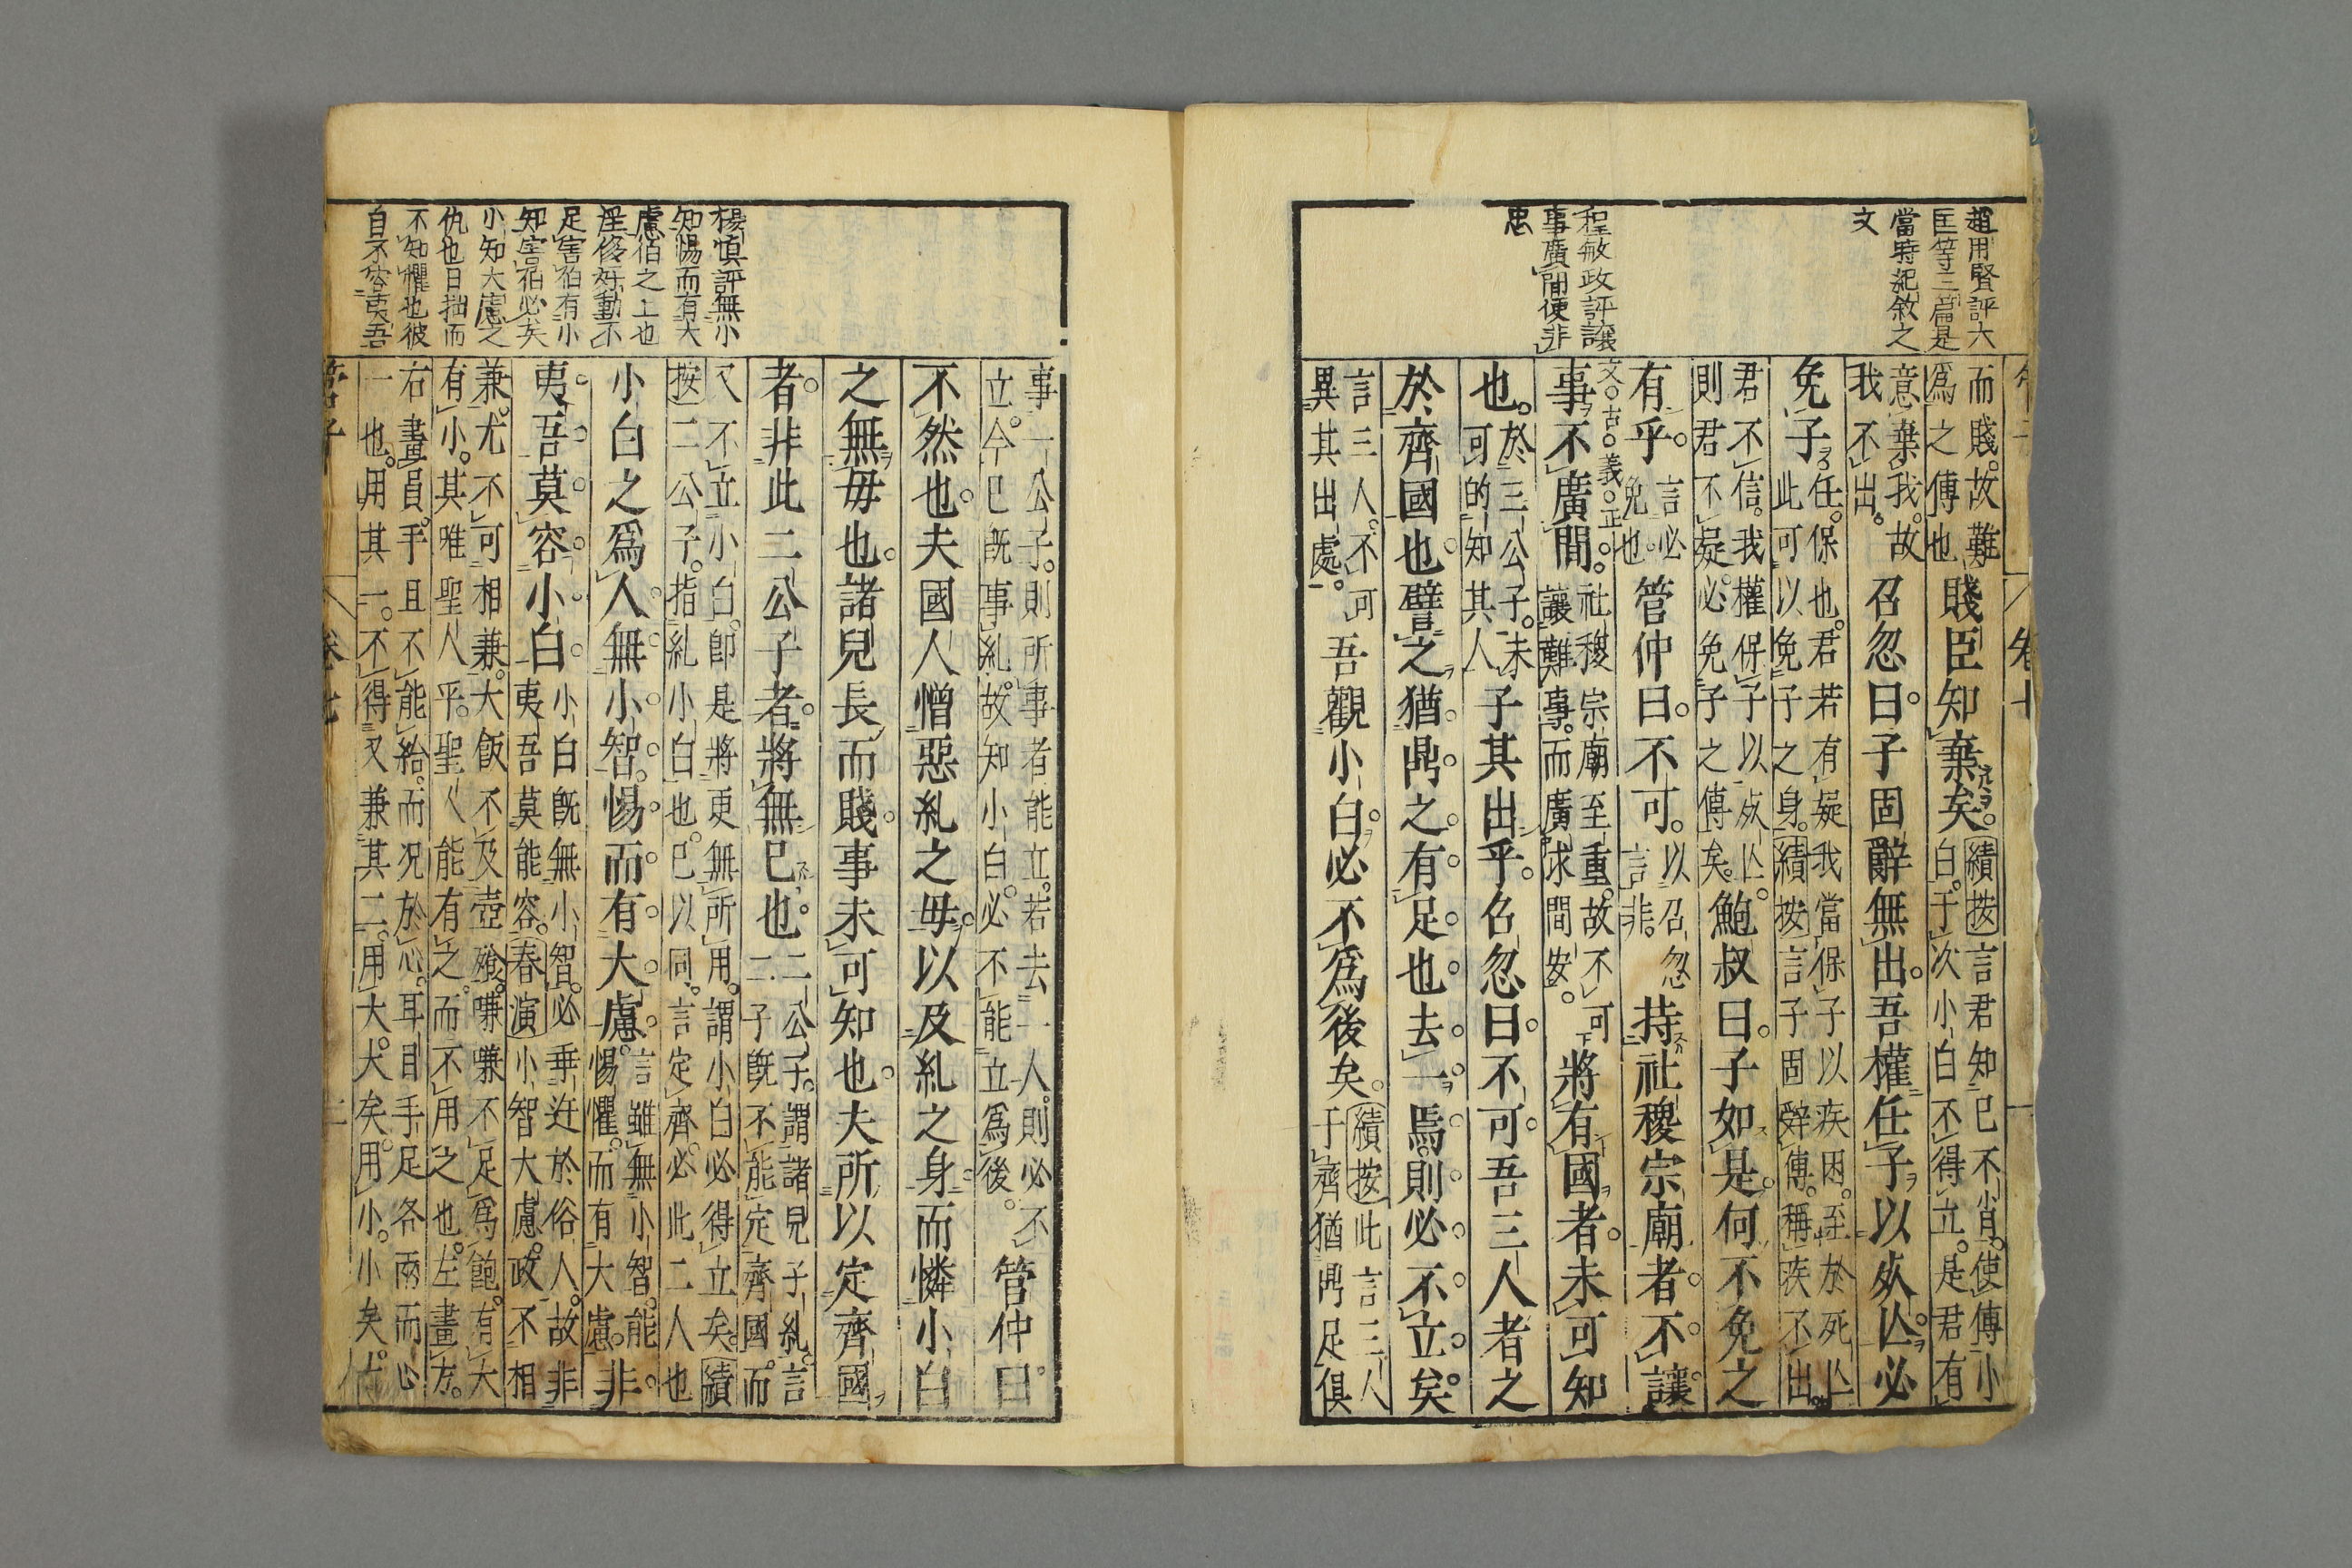 趙用賢評大
匡等三篇是
當時紀敘之
文
程敏政評讓
事廣閒便非
忠
而賤。故難
爲之傅也
賤臣知棄矣。
績按言君知已不肖。使傅小
白。于次小白不得立。是君有
意棄我。故
我不出。
召忽曰。子固辭無出。吾權任子以死亾。必
免子。
任。保也。君若有疑我當保子以疾困。至於死亾
此可以免子之身。績按言子固辭傅。稱疾不出。
君不信。我權保子以死亾。
則君不疑。必免子之傅矣。
鮑叔曰。子如是。何不免之
有乎。
言必
免也。
管仲曰。不可。
以召忽
言非。
持社稷宗廟者。不讓
文。古。義。正。
事不廣閒。
社稷宗廟至重。故不可
讓難事。而廣求閒安。
將有國者。未可知
也。
於三公子。未
可的知其人
子其出乎。召忽曰。不可。吾三人者之
於齊國也。譬之猶鼎之有足也。去一焉。則必不立矣。
言三人。不可
異其出處。
吾觀小白。必不爲後矣。
績按此言三人
于齊猶鼎足俱
事一公子。則所事者能立。若去一人。則必不
立。今已旣事糺。故知小白。必不能立爲後。
管仲曰。
不然也。夫國人憎惡糺之母。以及糺之身。而憐小白
之無母也。諸兒長而賤。事未可知也。夫所以定齊國
者。非此二公子者。將無已也。
二公子。謂諸兒子糺。言
二子旣不能定齊國。而
又不立小白。卽是將更無所用。謂小白必得立矣。績
按二公子。指糺小白也。已以同。言定齊。必此二人也
小白之爲人。無小智。惕而有大慮。
言雖無小智。能
惕懼。而有大慮。
非
夷吾莫容小白。
小白旣無小智。必乖迕於俗人。故非
夷吾莫能容。春演小智大慮。政不相
兼。尤不可相兼。大飯不及壺飱。嗛嗛不足爲飽。有大
有小。其唯聖人乎。聖人能有之。而不用之也。左畫方。
右畫員。手且不能給。而况於心。耳目手足各兩而心
一也。用其一。不得又兼其二。用大。大矣。用小。小矣。
楊慎評無小
知惕而有大
慮伯之上也
淫侈好動不
足害伯有小
知害伯必矣
小知大慮之
仇也日拙而
不知懼也彼
自不容夷吾
管子
卷七